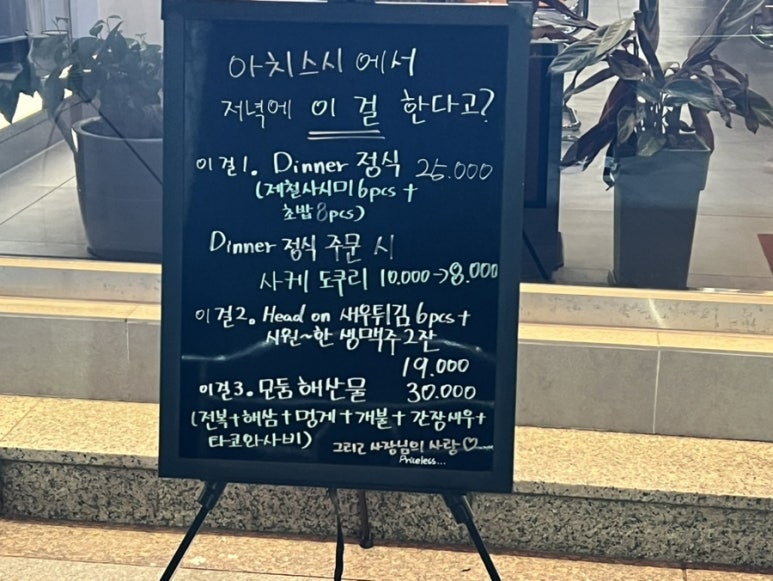 아치스시에서
저녁에 이걸 한다고?
이걸1. Dinner 정식 25.000
(제철사시미 6pcs +
초밥 8pcs)
Dinner 정식 주문 시
사케 도쿠리 10.000→8.000
이걸2. Head on 새우튀김 6pcs +
시원~한 생맥주 2잔
19.000
이걸3. 모둠 해산물 30.000
(전복+해삼+멍게+개불+간장새우+
타코와사비) 그리고 사장님의 사랑♡
Priceless...